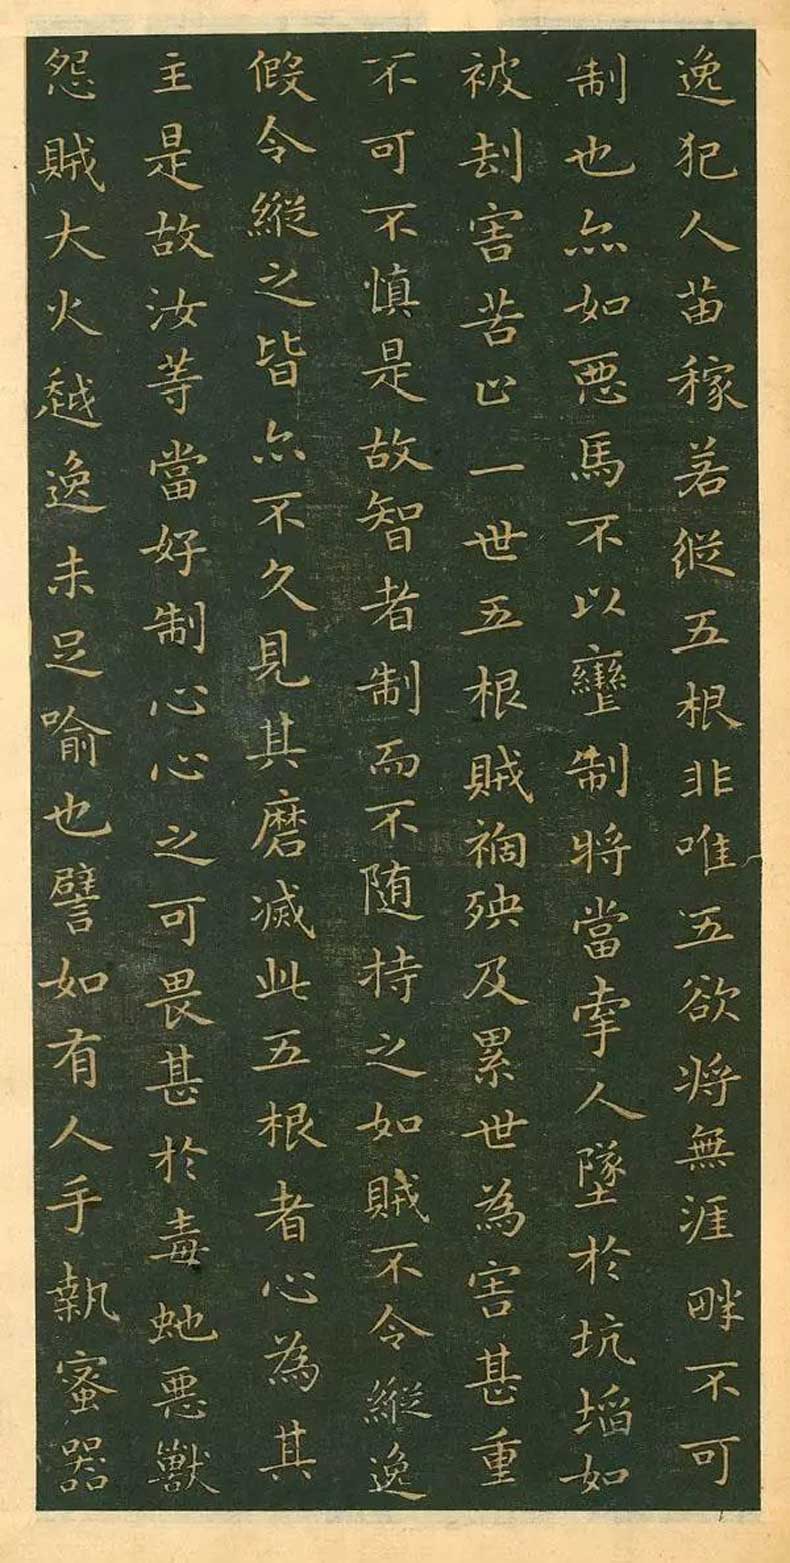 逸犯人苗稼若縱五根非唯五欲将無涯畔不可
制也亦如悪馬不以轡制将當牽人墜於坑埳如
被刦害苦止一世五根賊禍殃及累世為害甚重
不可不慎是故智者制而不随持之如賊不令縱逸
假令縱之皆亦不久見其磨滅此五根者心為其
主是故汝等當好制心心之可畏甚於毒虵悪獸
怨賊大火越逸未足喻也譬如有人手執蜜器